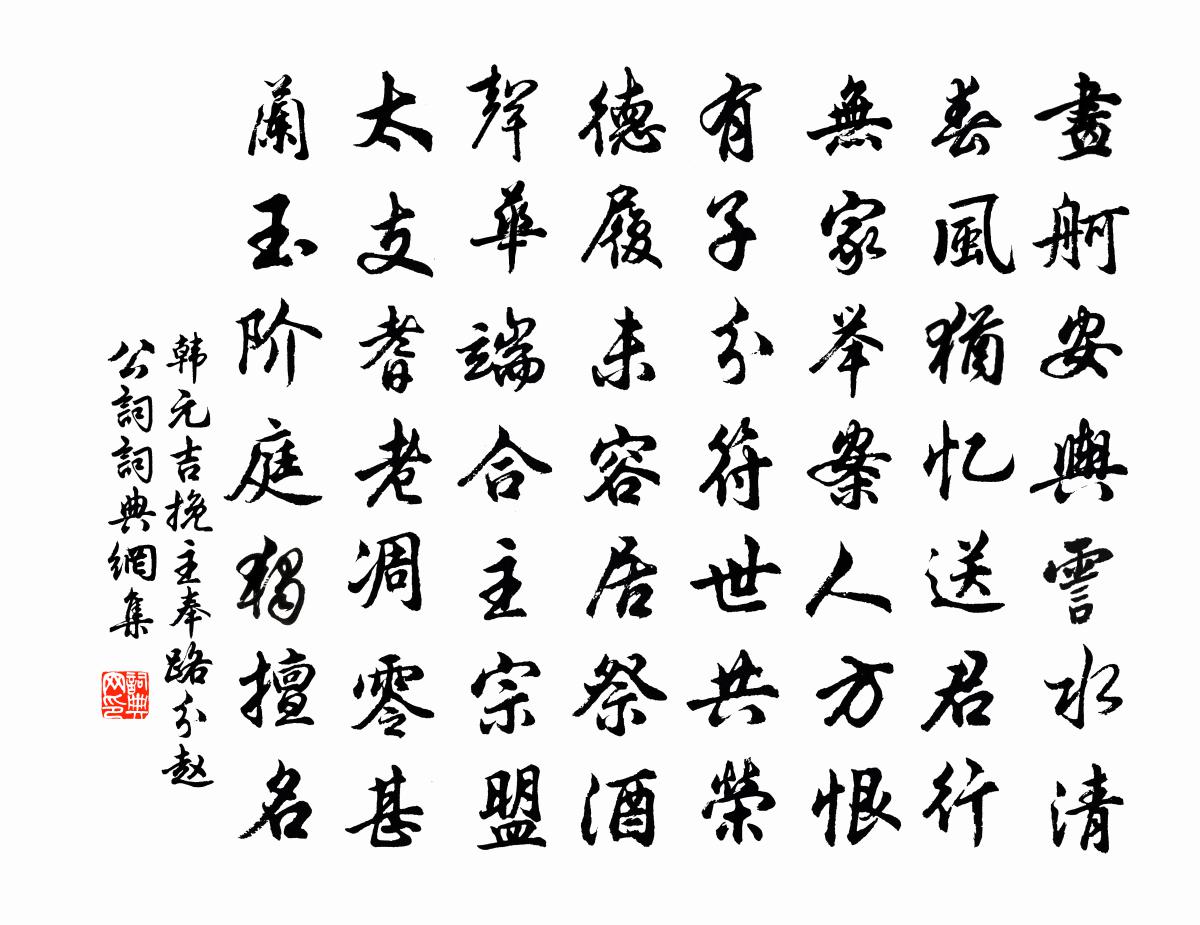 畫舸安輿霅水清
春風猶忆送君行
無家举案人方恨
有子分符世共榮
德履未容居祭酒
聲華端合主宗盟
太支耆老凋零甚
蘭玉阶庭獨擅名
韩元吉挽主奉路分赵
公詞詞典網集
詞典
网印